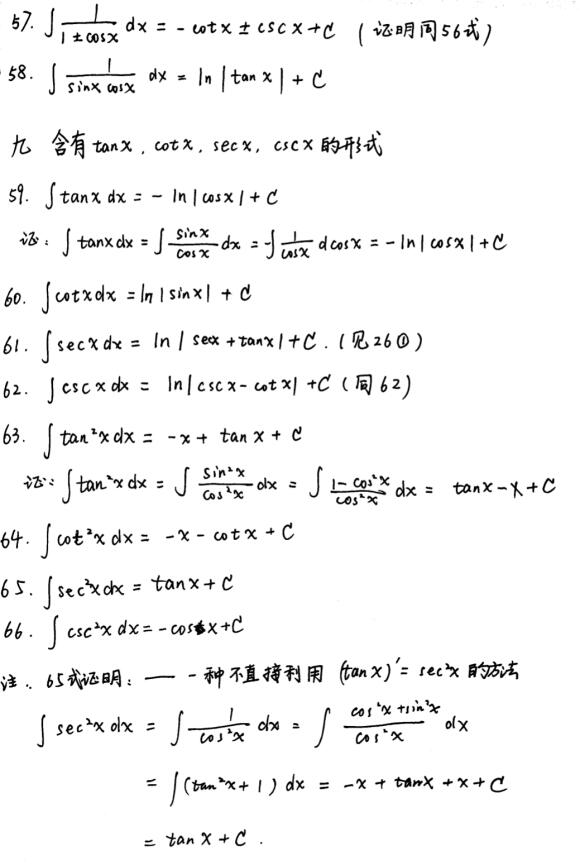 57. ∫ 1/(1 ± cosx) dx = - cotx ± cscx + C (证明同56式)
58. ∫ 1/(sinx cosx) dx = ln |tan x| + C
九 含有 tanx, cotx, secx, cscx 的形式
59. ∫ tanx dx = - ln |cosx| + C
证: ∫ tanx dx = ∫ sinx/cosx dx = -∫ 1/cosx dcosx = - ln |cosx| + C
60. ∫ cotx dx = ln |sinx| + C
61. ∫ secx dx = ln | secx + tanx | + C. (见26①)
62. ∫ cscx dx = ln |cscx - cotx| + C (同62)
63. ∫ tan²x dx = -x + tanx + C
证: ∫ tan²x dx = ∫ sin²x/cos²x dx = ∫ (1-cos²x)/cos²x dx = tanx - x + C
64. ∫ cot²x dx = -x - cotx + C
65. ∫ sec²x dx = tanx + C
66. ∫ csc²x dx = -cotx + C
注: 65式证明: — 一种不直接利用 (tanx)' = sec²x 的方法
∫ sec²x dx = ∫ 1/cos²x dx = ∫ (cos²x + sin²x)/cos²x dx
= ∫ (tan²x + 1) dx = -x + tanx + x + C
= tan x + C .